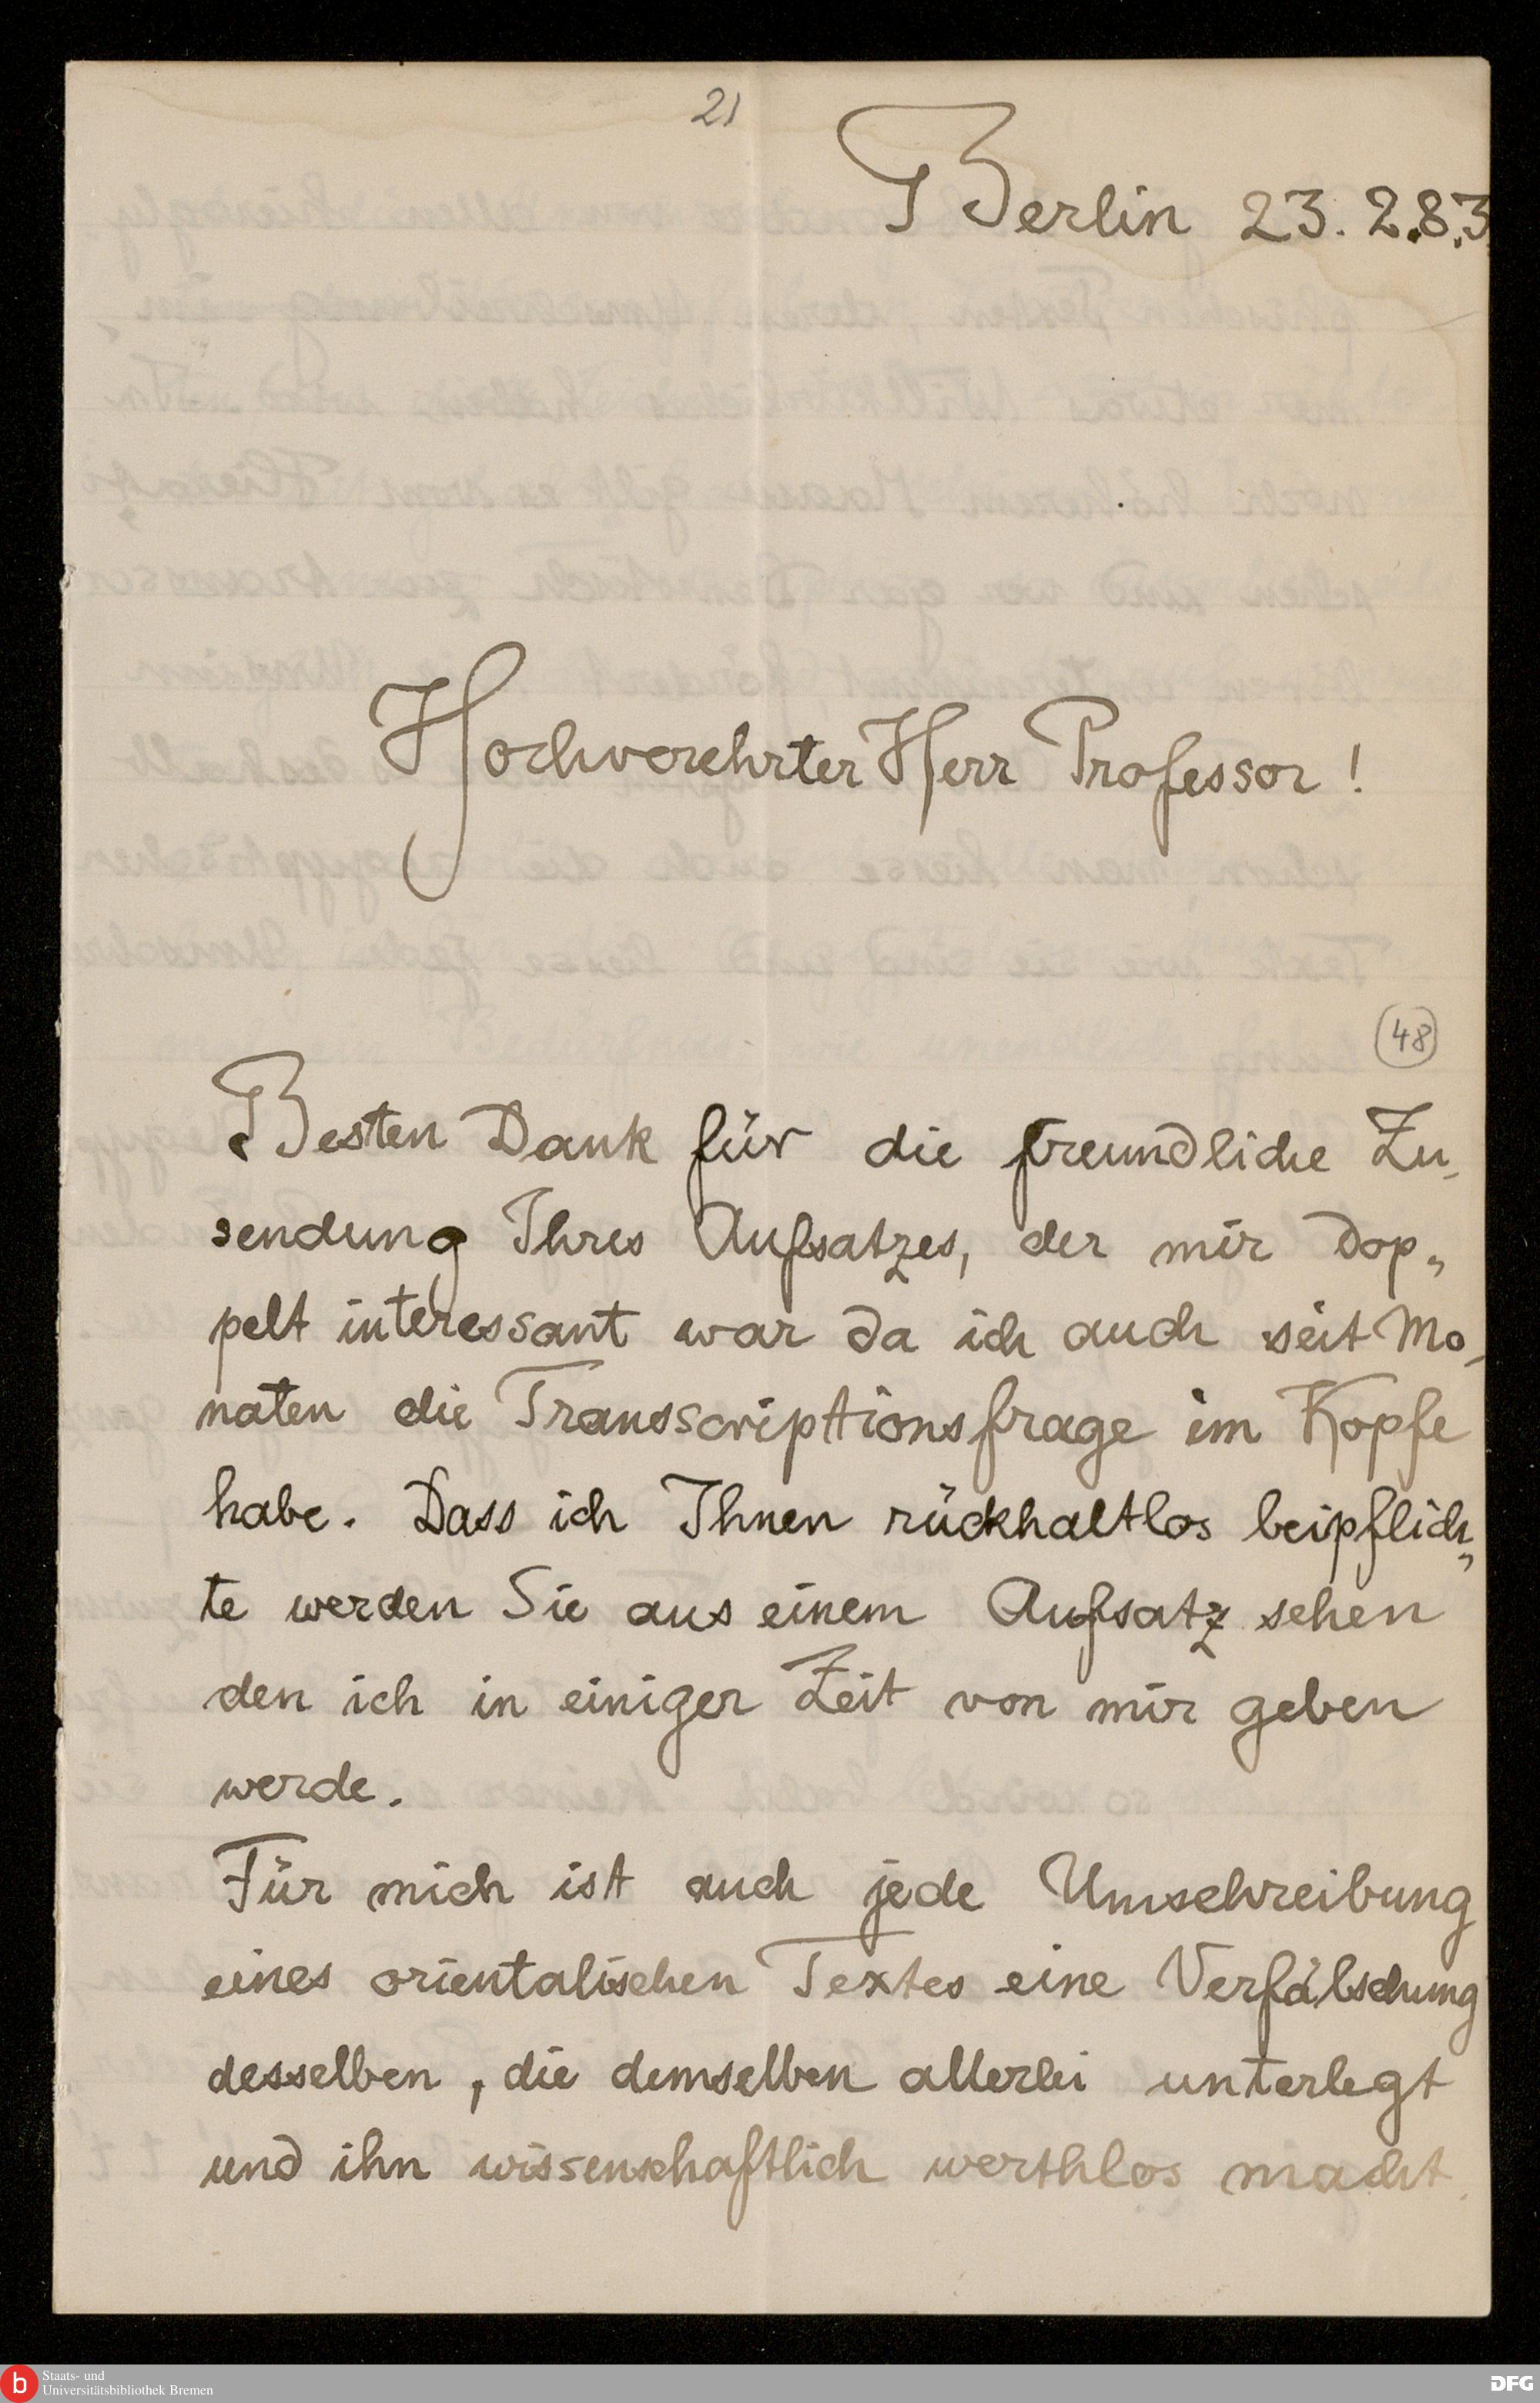 21
Berlin 23. 2. 83.
Hochverehrter Herr Professor!
48
Besten Dank für die freundliche Zu-
sendung Ihres Aufsatzes, der mir dop-
pelt interessant war da ich auch seit Mo-
naten die Transscriptionsfrage im Kopfe
habe. Dass ich Ihnen rückhaltlos beipflich-
te werden Sie aus einem Aufsatz sehen
den ich in einiger Zeit von mir geben
werde.
Für mich ist auch jede Umschreibung
eines orientalischen Textes eine Verfälschung
desselben, die demselben allerlei unterlegt
und ihn wissenschaftlich werthlos macht.
b Staats- und
Universitätsbibliothek Bremen
DFG